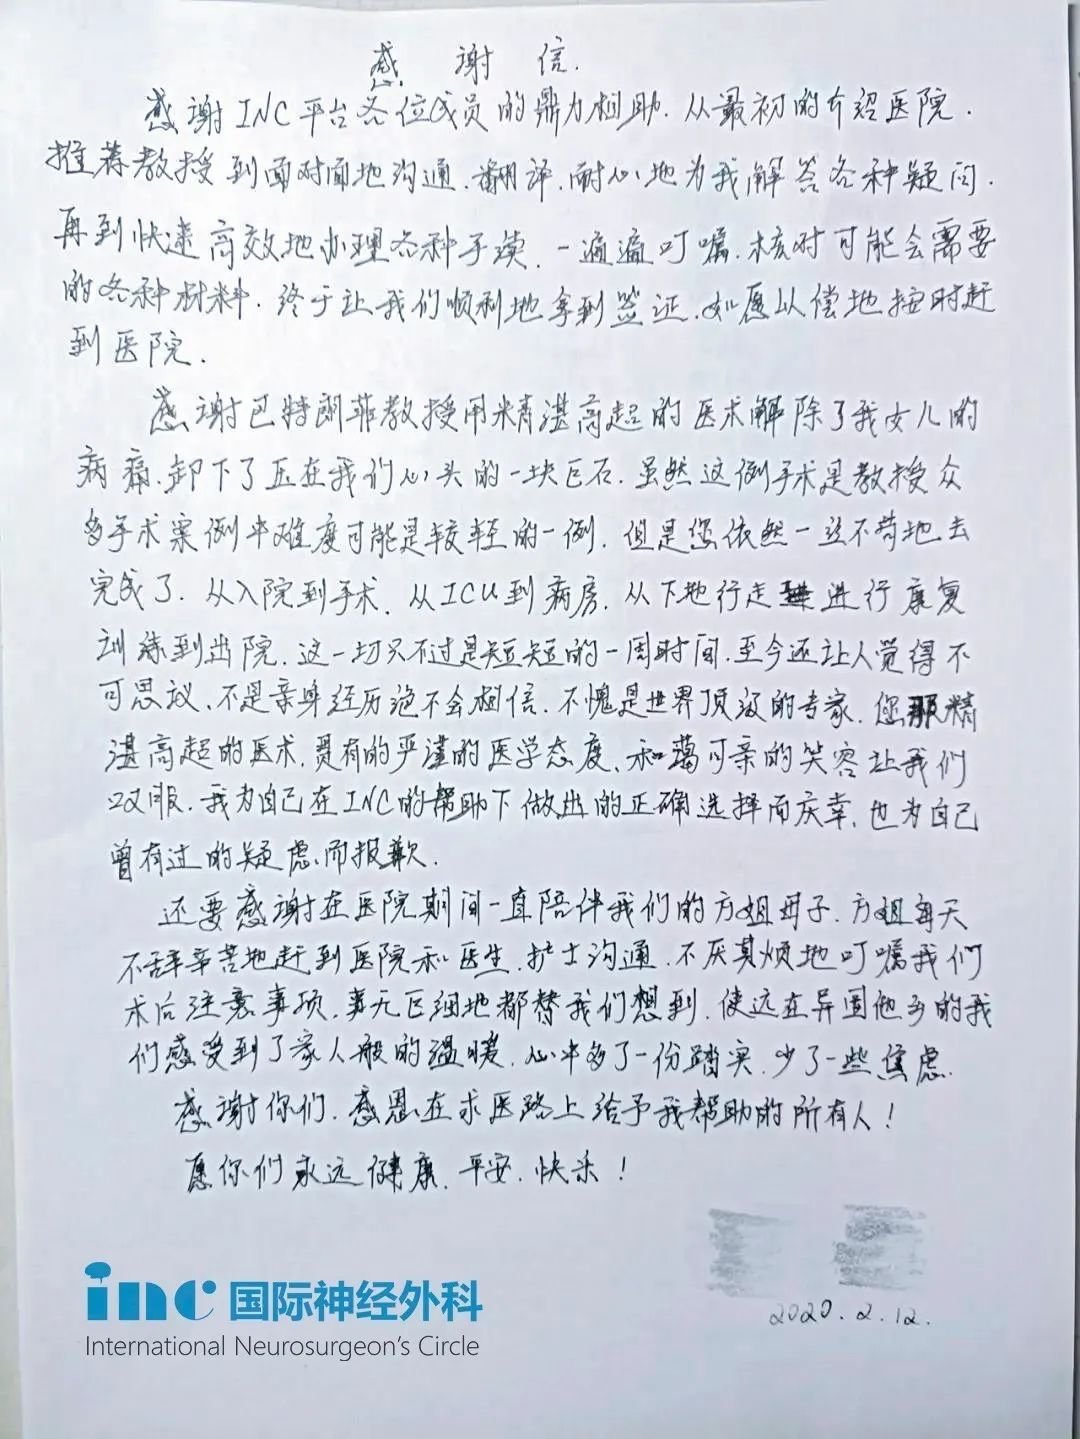 感谢信.
感谢INC平台各位成员的鼎力相助.从最初的介绍医院.
推荐教授到面对面地沟通.翻译.耐心地为我解答各种疑问.
再到快速高效地办理各种手续.一遍遍叮嘱.核对可能会需要
的各种材料.终于让我们顺利地拿到签证.如愿以偿地按时赶
到医院.
感谢巴特朗菲教授用精湛高超的医术解除了我女儿的
病痛.卸下了压在我们心头的一块巨石.虽然这例手术是教授众
多手术案例中难度可能是较轻的一例.但是您依然一丝不苟地去
完成了.从入院到手术.从ICU到病房.从下地行走进行康复
训练到出院.这一切只不过是短短的一周时间.至今还让人觉得不
可思议.不是亲身经历绝不会相信.不愧是世界顶级的专家.您那精
湛高超的医术.具有的严谨的医学态度.和蔼可亲的笑容让我们
叹服.我为自己在INC的帮助下做出的正确选择而庆幸.也为自己
曾有过的疑虑而报歉.
还要感谢在医院期间一直陪伴我们的方姐母子.方姐每天
不辞辛苦地赶到医院和医生.护士沟通.不厌其烦地叮嘱我们
术后注意事项.事无巨细地都替我们想到.使远在异国他乡的我
们感受到了家人般的温暖.心中多了一份踏实.少了一些焦虑.
感谢你们.感恩在求医路上给予我帮助的所有人!
愿你们永远健康.平安.快乐!
2020.2.12.
inc 国际神经外科
International Neurosurgeon's Circle